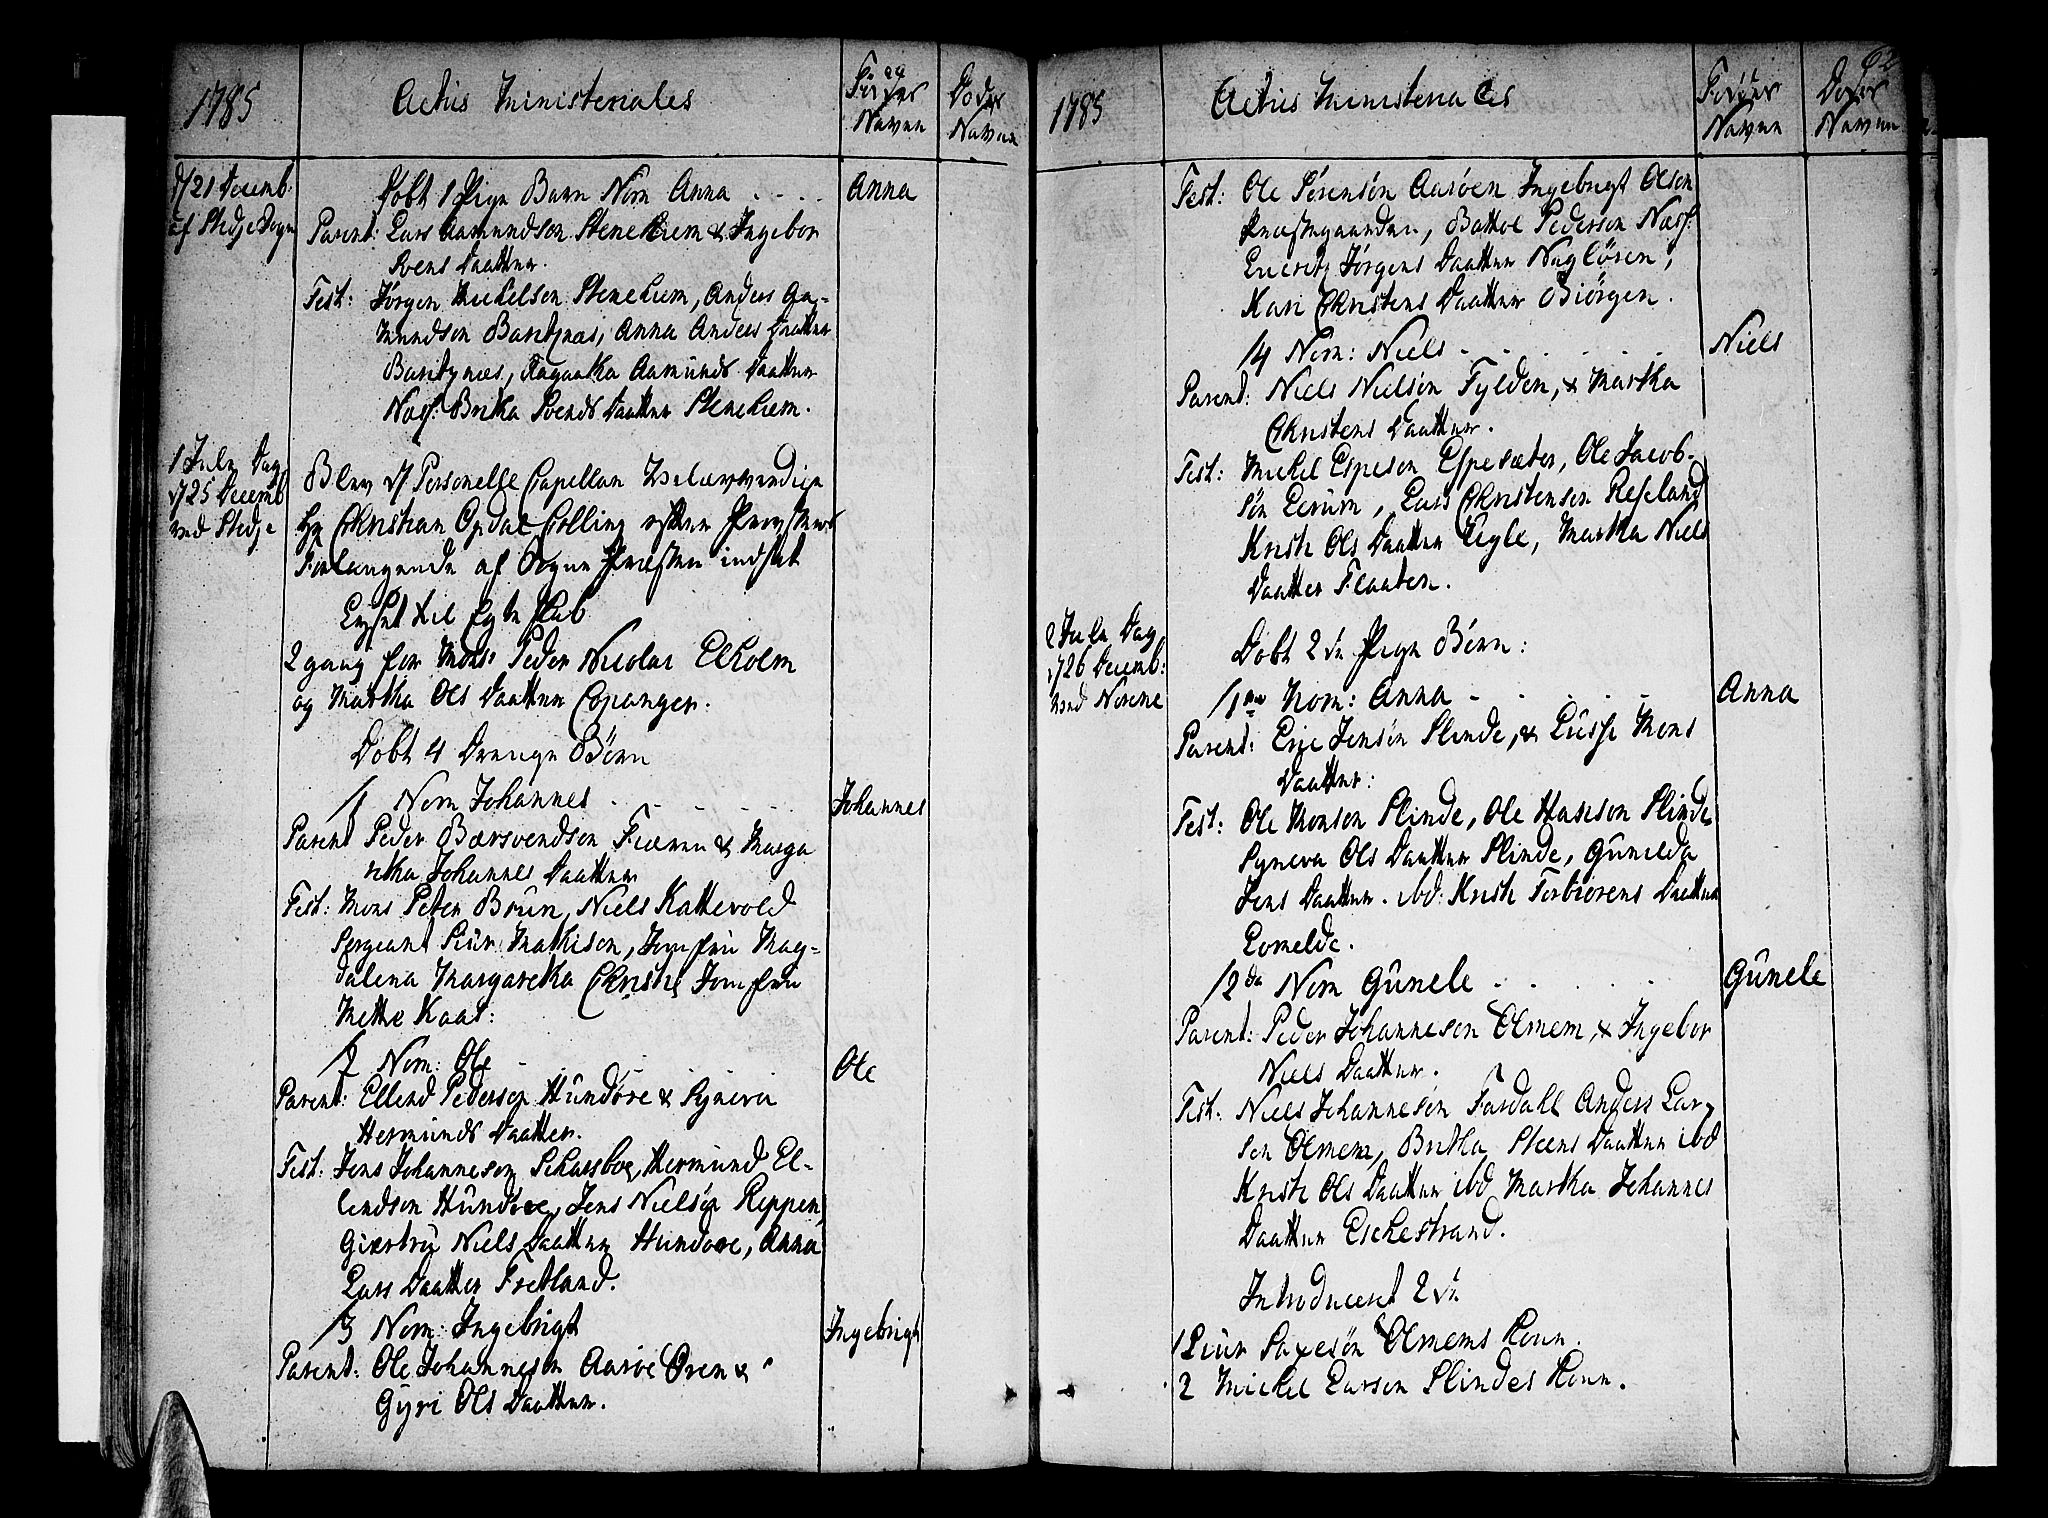 1785
Actus Ministeriales
Fødes Navne
Dødes Navne
d/21 Decemb:
af Stedje Sogn
Døbt 1 Pige Barn Nom Anna . . . .
Anna
Parent: Lars Aamundson Steneheim & Ingebor
Svens Daatter.
Test: Jørgen Mickelson Steneheim, Anders Aa-
mundson Barsnæs, Anna Anders Daatter
Barsnæs, Ragnilda Aamunds Daatter
Næss. Britha Svends Daatter Steneheim.
1 Jule Dag
d/25 Decemb
ved Stedje
Blev d/ Personelle Capellan Velærværdige
Hr Christian Opdal Colling efter Provstens
Forlangende af Sogne Præsten indsat
Lyset til Egte skab
2 gang for Mons: Peder Nicolai Elholm
og Martha Ols Daatter Copanger.
Døbt 4 Drenge Børn
/1 Nom Johannes . . . . .
Johannes
Parent Peder Bærsvendson Fiærne & Marga
retha Johannes Daatter
Test: Mons Peter Brun, Niels Kattevold
Sergeant Siur Mathison, Jomfru Mag-
dalena Margaretha Christie Jomfru
Mette Kaas:
/2 Nom: Ole . . . .
Ole
Parent: Ellend Pederson Hundere & Syneva
Hermunds Daatter.
Test: Jens Johanneson Skarsboe, Hermund El-
lendson Hundere, Jens Nielsøn Rippen,
Giertru Niels Daatter Hundere, Anna
Lars Daatter Fretland.
/3 Nom: Ingebrigt
Ingebrigt
Parent: Ole Johanneson Aarøe Øren &
Gyri Ols Daatter.
62
1785
Actus Ministeriales
Fødes Navne
Dødes Navne
Test: Ole Sørensøn Aarøen Ingebrigt Olson
Præstegaarden, Botholf Pederson Næss.
Lucretz Jørgens Daatter Nagløren,
Kari Christens Daatter Biørgen.
/4 Nom: Niels . . . . . .
Niels
Parent: Niels Nielsøn Fylden, & Martha
Christens Daatter.
Test: Mickel Espeson Espesæter, Ole Jacob-
søn Lerum, Lars Christenson Reseland
Kristi Ols Daatter Eigle, Martha Niels
Daatter Flaaten.
2 Jule Dag
d/26 Decemb:
ved Norene
Døbt 2de Pige Børn:
/1ma Nom: Anna . . . . .
Anna
Parent: Eric Jensøn Slinde, & Lussi Mons
Daatter:
Test: Ole Monson Slinde, Ole Hanson Slinde
Syneva Ols Daatter Slinde, Gunilda
Jens Daatter. ibd: Kristi Torbiørens Daatter
Lomelde.
/2da Nom Gunele . . . . .
Gunele
Parent: Peder Johanneson Olmem, & Ingebor
Niels Daatter.
Test: Niels Johannesøn Fardall Anders Lar-
son Olmem, Britha Steens Daatter ibd
Kristi Ols Daatter ibd Martha Johannes
Daatter Eschestrand.
Introduceret 2de
1 Siur Saxesøn Olmems Konn.
2 Mickel Larson Slindes Konn.